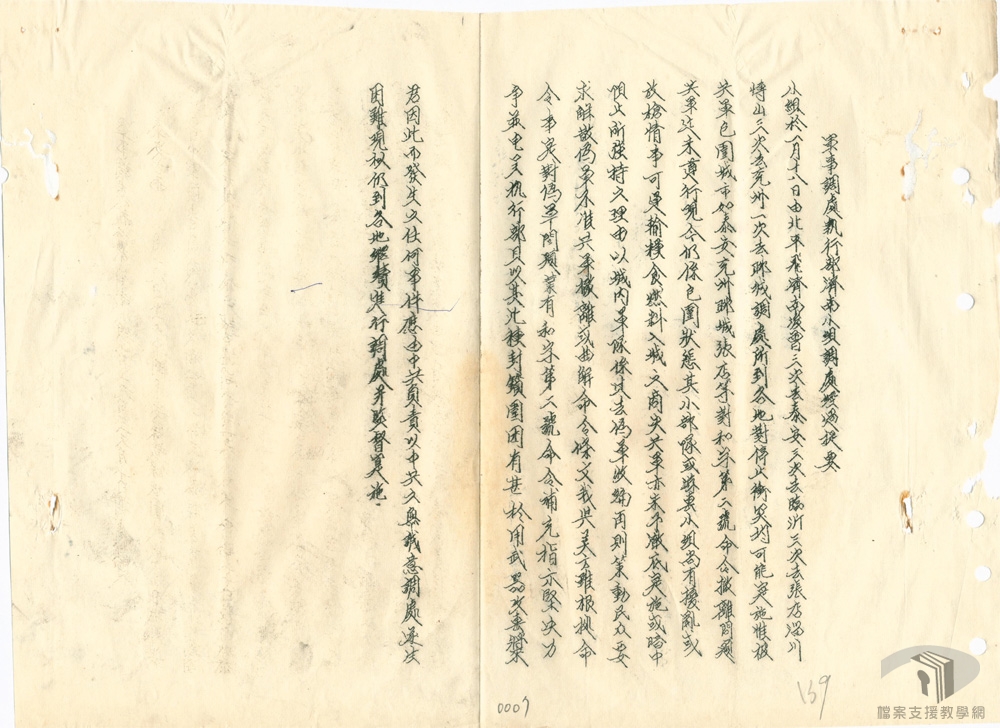 軍事調處執行部濟南小組調處經過摘要
小組於一月十八日由北平飛濟南後曾三次去泰安三次去臨沂三次去張店淄川
博山三次去兗州一次去聊城調處所到各地對停止衝突均可能實施惟被
共軍包圍城市如泰安兗州聊城張店等對和字第二號命令撤離問題
共軍迄未遵行現今仍係包圍狀態其小部隊或時裏小組尚有擾亂或
放槍情事可是輸糧食燃料入城之商失共軍亦未予澈底實施或暗中
阻止所強持之理由以城內軍隊係其去偽軍改編否則策動民众要
求解散偽軍不准共軍撤離或曲解命令條文我與美方雖根據命
令事定對偽軍問題業有和字第二號命令補充指示堅決力
爭並电呈执行部且以其此種封鎖圍困有甚於用武器攻擊綜
若因此而發生之任何事件應由中共負責以中共之無誠意調處逐生
困難現仍到各地繼續進行調處并監督实施
0007
159
檔案支援教學網